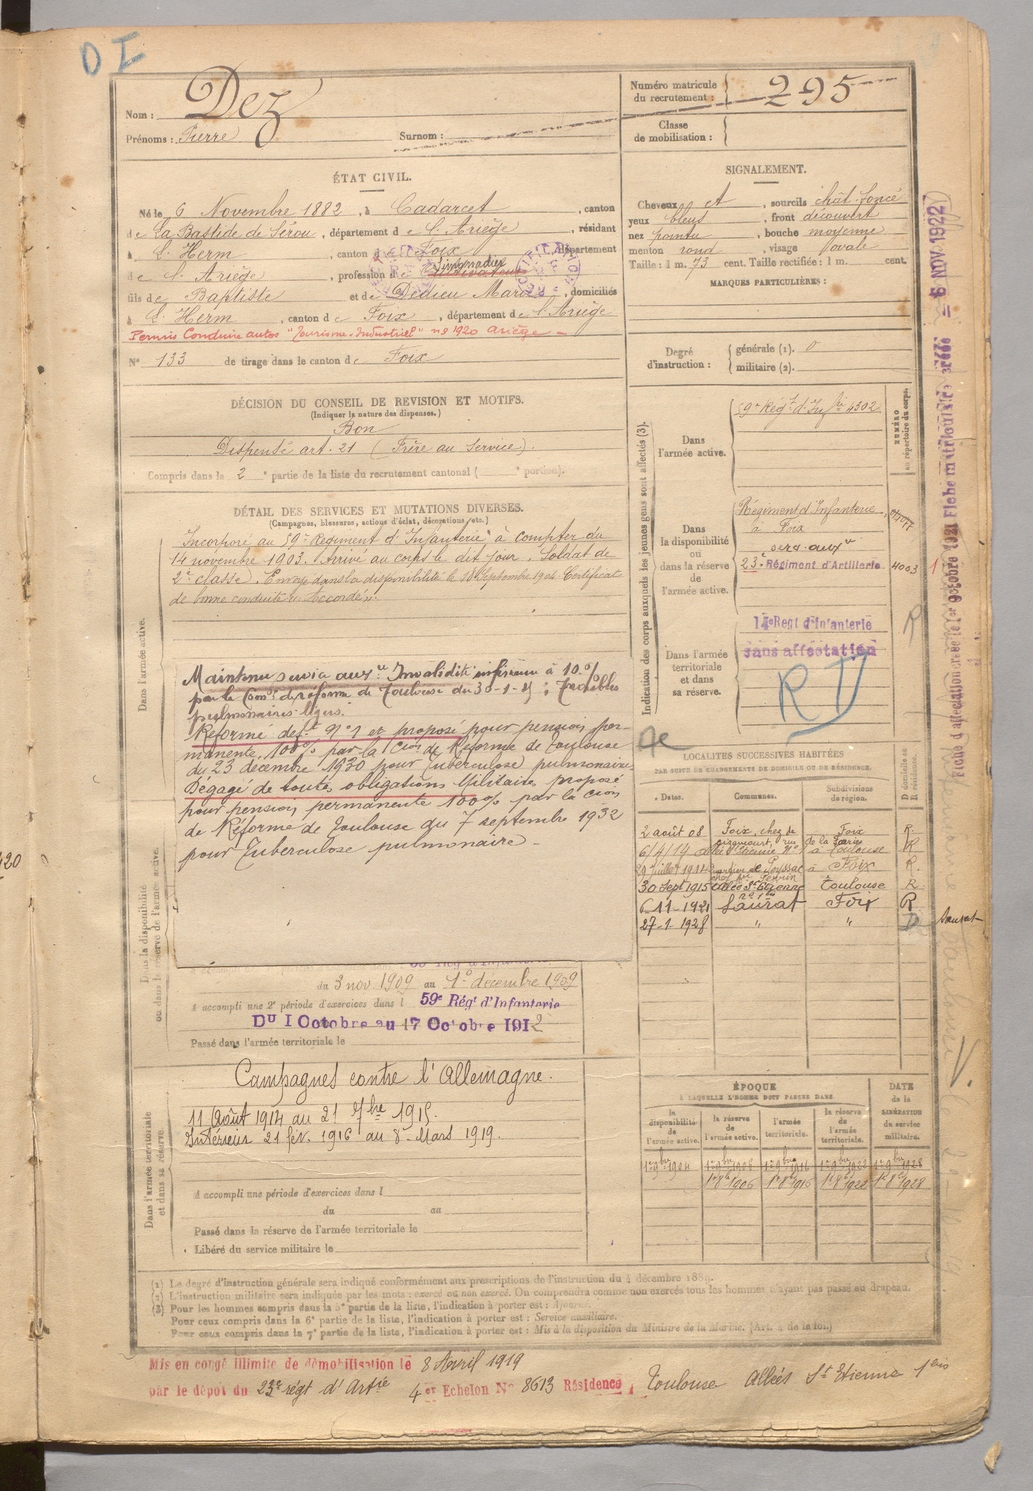 D I
Nom : Dez
Prénoms : Pierre Surnom :
Numéro matricule du recrutement : 295
Classe de mobilisation :
ÉTAT CIVIL.
Né le 6 Novembre 1882, à Cadarcet, canton
de La Bastide de Sérou, département de l'Ariège, résidant
à L'Herm, canton de Foix, département
de l'Ariège, profession de Limonadier cultivateur
fils de Baptiste et de Dedieu Marie, domiciliés
à L'Herm, canton de Foix, département de l'Ariège
Permis Conduire autos "Tourisme-Industriel" n° 1920 Ariège
N° 133 de tirage dans le canton de Foix
SIGNALEMENT.
Cheveux et, sourcils chât. foncé
yeux bleus, front découvert
nez pointu, bouche moyenne
menton rond, visage ovale
Taille : 1 m. 73 cent. Taille rectifiée : 1 m. cent.
MARQUES PARTICULIÈRES :
Degré d'instruction : générale (1). 0
militaire (2).
DÉCISION DU CONSEIL DE REVISION ET MOTIFS.
(Indiquer la nature des dispenses.)
Bon
Dispensé art. 21 (Frère au Service).
Compris dans la 2e partie de la liste du recrutement cantonal ( e portion).
DÉTAIL DES SERVICES ET MUTATIONS DIVERSES.
(Campagnes, blessures, actions d'éclat, décorations, etc.)
Dans l'armée active.
Incorporé au 59e Régiment d'Infanterie à compter du
14 novembre 1903. Arrivé au corps le dit jour. Soldat de
2e classe. Envoyé dans la disponibilité le 18 Septembre 1904. Certificat
de bonne conduite "Accordé".
Maintenu service auxre Invalidité inférieure à 10%
par la Comon de réforme de Toulouse du 30-1-
pulmonaires légers.
Réformé deft n° 1 et proposé pour pension per-
manente 100% par la Cion de Réforme de Toulouse
du 23 décembre 1930 pour Tuberculose pulmonaire
Dégagé de toutes obligations Militaires proposé
pour pension permanente 100% par la cion
de Réforme de Toulouse du 7 septembre 1932
pour Tuberculose pulmonaire -
Dans la disponibilité ou dans la réserve de l'armée active.
du 3 nov 1909 au 1er décembre 1909
A accompli une 2e période d'exercices dans l 59e Régt d'Infanterie
DU 1 Octobre au 17 Octobre 1912
Passé dans l'armée territoriale le
Dans l'armée territoriale et dans sa réserve.
Campagnes contre l'Allemagne.
11 Août 1914 au 21 7bre 1915.
Intérieur 21 fév. 1916 au 8 Mars 1919.
A accompli une période d'exercices dans l
du au
Passé dans la réserve de l'armée territoriale le
Libéré du service militaire le
Indication des corps auxquels les jeunes gens sont affectés (3).
NUMÉRO au répertoire du corps.
Dans l'armée active. 59e Régt d'Infrie 4302
Dans la disponibilité ou dans la réserve de l'armée active.
Régiment d'Infanterie
à Foix
serv. auxre
23e Régiment d'Artillerie 4003
Dans l'armée territoriale et dans sa réserve.
14e Regt d'infanterie
sans affectation
R D
R
LOCALITÉS SUCCESSIVES HABITÉES
PAR SUITE DE CHANGEMENTS DE DOMICILE OU DE RÉSIDENCE.
Dates. Communes. Subdivisions de région. D domicile R résidence.
2 août 08 Foix, chez de Foix R.
6/4/14 Toulouse R.
Foix R.
30 Sept 1915 Allées St Etienne Toulouse R
6-11-1921 Saurat Foix R
27-1-1928 " " D Saurat
ÉPOQUE
À LAQUELLE L'HOMME DOIT PASSER DANS
DATE de la LIBÉRATION du service militaire.
la disponibilité de l'armée active. la réserve de l'armée active. l'armée territoriale. la réserve de l'armée territoriale.
1er 9bre 1904
1er 8e 1906 1er 8e 1915 1er 8e 1922 1er 8e 1928
(1) Le degré d'instruction générale sera indiqué conformément aux prescriptions de l'instruction du 4 décembre 1889.
(2) L'instruction militaire sera indiquée par les mots : exercé ou non exercé. On comprendra comme non exercés tous les hommes n'ayant pas passé au drapeau.
(3) Pour les hommes compris dans la 5e partie de la liste, l'indication à porter est : Ajourné.
Pour ceux compris dans la 6e partie de la liste, l'indication à porter est : Service auxiliaire.
Pour ceux compris dans la 7e partie de la liste, l'indication à porter est : Mis à la disposition du Ministre de la Marine. (Art. 4 de la loi.)
Mis en congé illimité de démobilisation le 8 Avril 1919
par le dépôt du 23e régt d'Artie 4er Echelon N° 8613 Résidence, Toulouse Allées St Etienne 1 bis